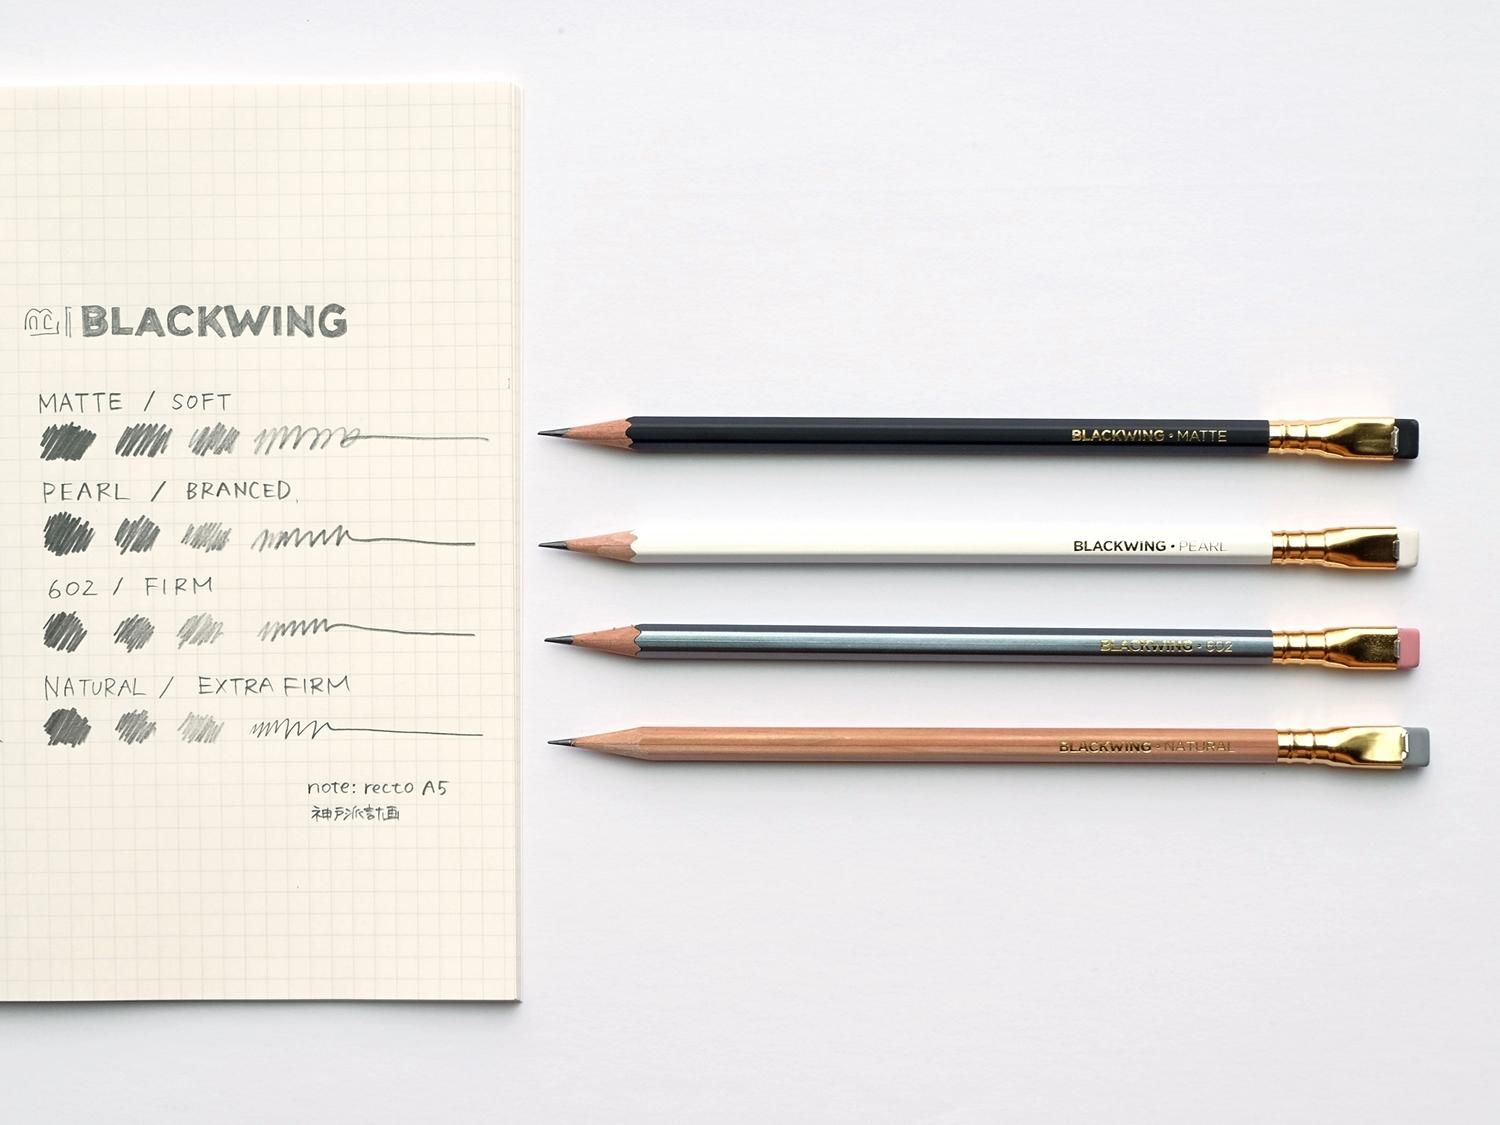 BLACKWING
MATTE / SOFT
PEARL / BRANCED.
602 / FIRM
NATURAL / EXTRA FIRM
note: recto A5
神戸派計画
BLACKWING • MATTE
BLACKWING • PEARL
BLACKWING • 602
BLACKWING • NATURAL